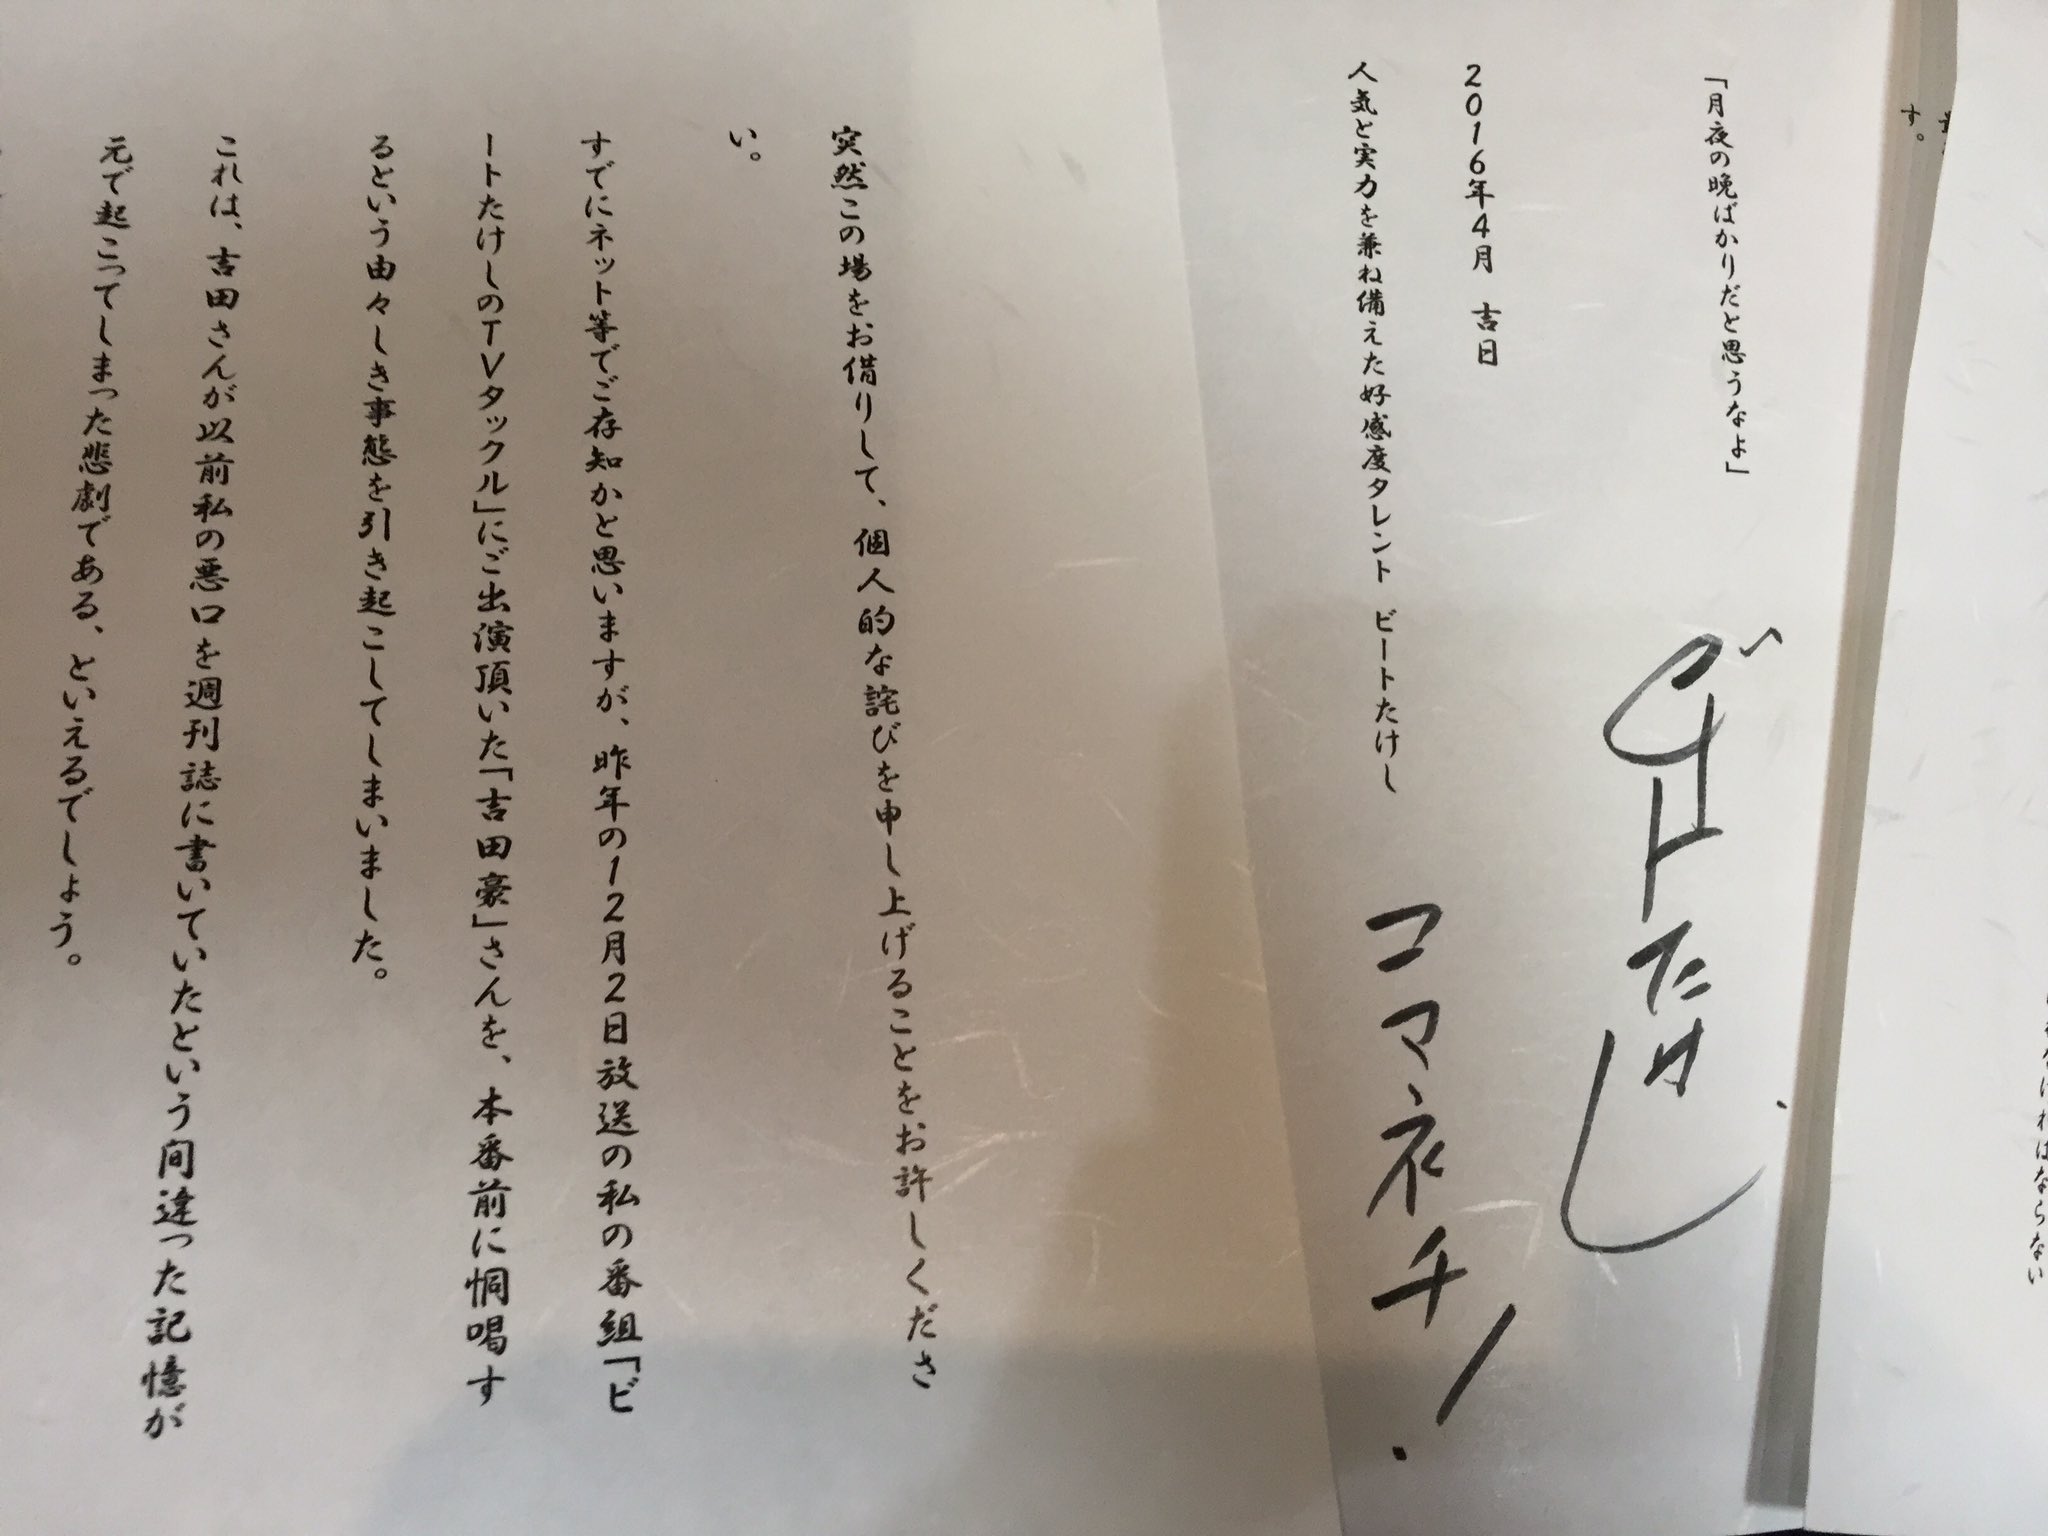 なければならない
す。
「月夜の晩ばかりだと思うなよ」
ビートたけし
2016年4月 吉日
人気と実力を兼ね備えた好感度タレント ビートたけし
コマネチ!
突然この場をお借りして、個人的な詫びを申し上げることをお許しくださ
い。
すでにネット等でご存知かと思いますが、昨年の12月2日放送の私の番組「ビ
ートたけしのTVタックル」にご出演頂いた「吉田豪」さんを、本番前に恫喝す
るという由々しき事態を引き起こしてしまいました。
これは、吉田さんが以前私の悪口を週刊誌に書いていたという間違った記憶が
元で起こってしまった悲劇である、といえるでしょう。